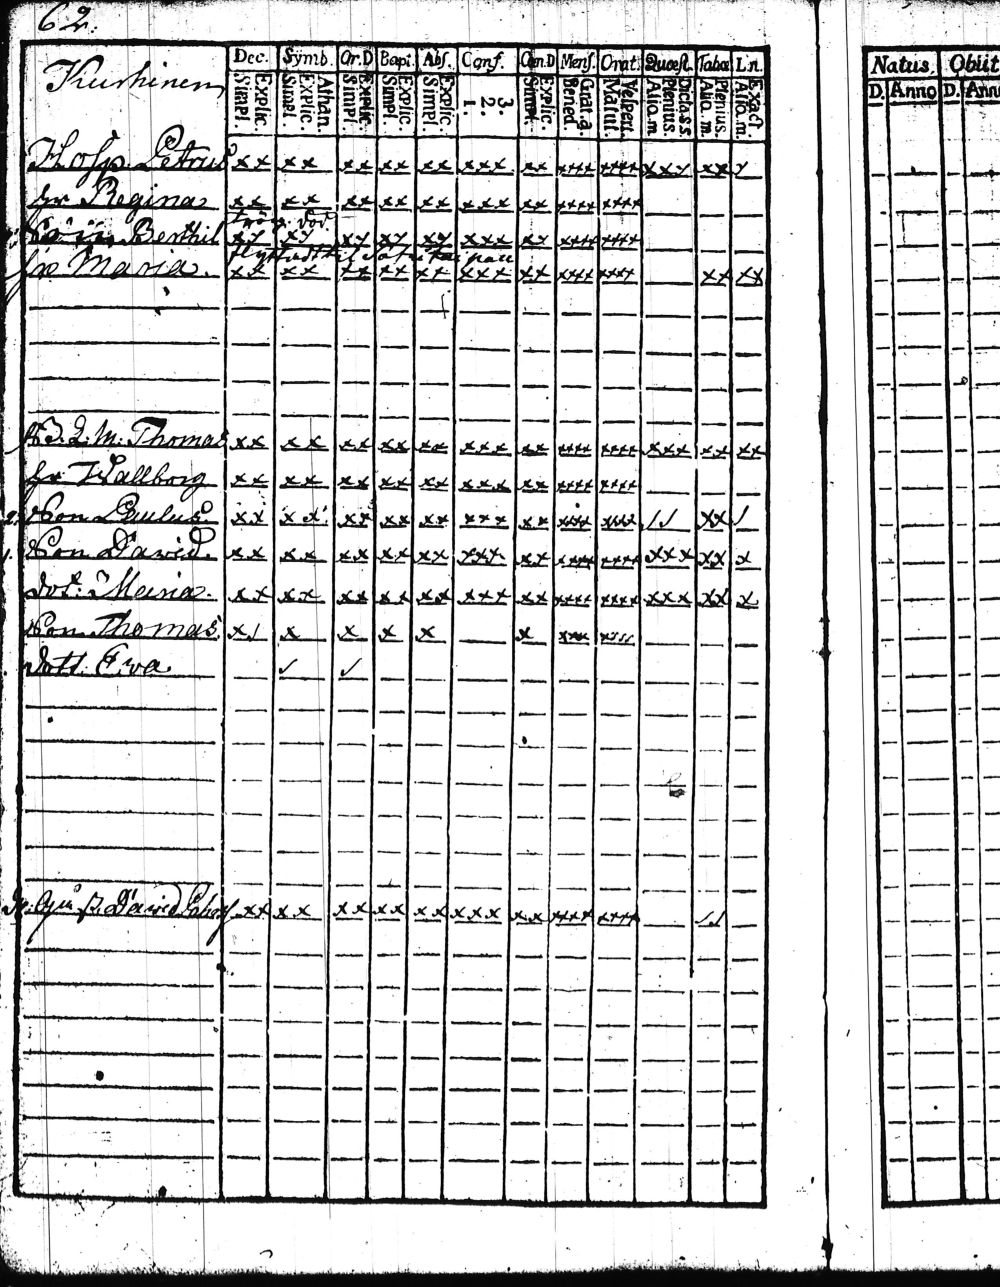 62.
Dec. Symb. Or.D Bapt. Abs. Conf. Cœn.D Mens. Orat. Quæst. Tabæ L.n. Natus. Obiit
Explic. Simpl. Athan. Explic. Simpl. Explic. Simpl. Explic. Simpl. Explic. Simpl. 3. 2. 1. Explic. Simpl. Grat. a. Bened. Vespert. Matut. Dicta s.s. Plenius. Aliq. m. Plenius. Aliq. m. Exact Aliq. m. D. Anno D. Ann
Hosp. Petrus xx xx xx xx xx xxx xx xxxx xxxx xxx xx
hr Regina xx xx xx xx xx xxx xx xxxx xxxx
Berthil xx xx xx xx xx xxx xx xxxx xxxx
hr Maria. xx xx xx xx xx xxx xx xxxx xxxx xx xx
Thomas xx xx xx xx xx xxx xx xxxx xxxx xxx xx xx
hr Wallborg xx xx xx xx xx xxx xx xxxx xxxx
2. Son Paulus xx xx xx xx xx xxx xx xxxx xxxx // xx /
1. Son David. xx xx xx xx xx xxx xx xxxx xxxx xxx xx x
dot: Maria. xx xx xx xx xx xxx xx xxxx xxxx xxx xx x
Son Thomas x/ x x x x x xxx
dott. Eva
David xx xx xx xx xx xxx xx xxxx xxxx //